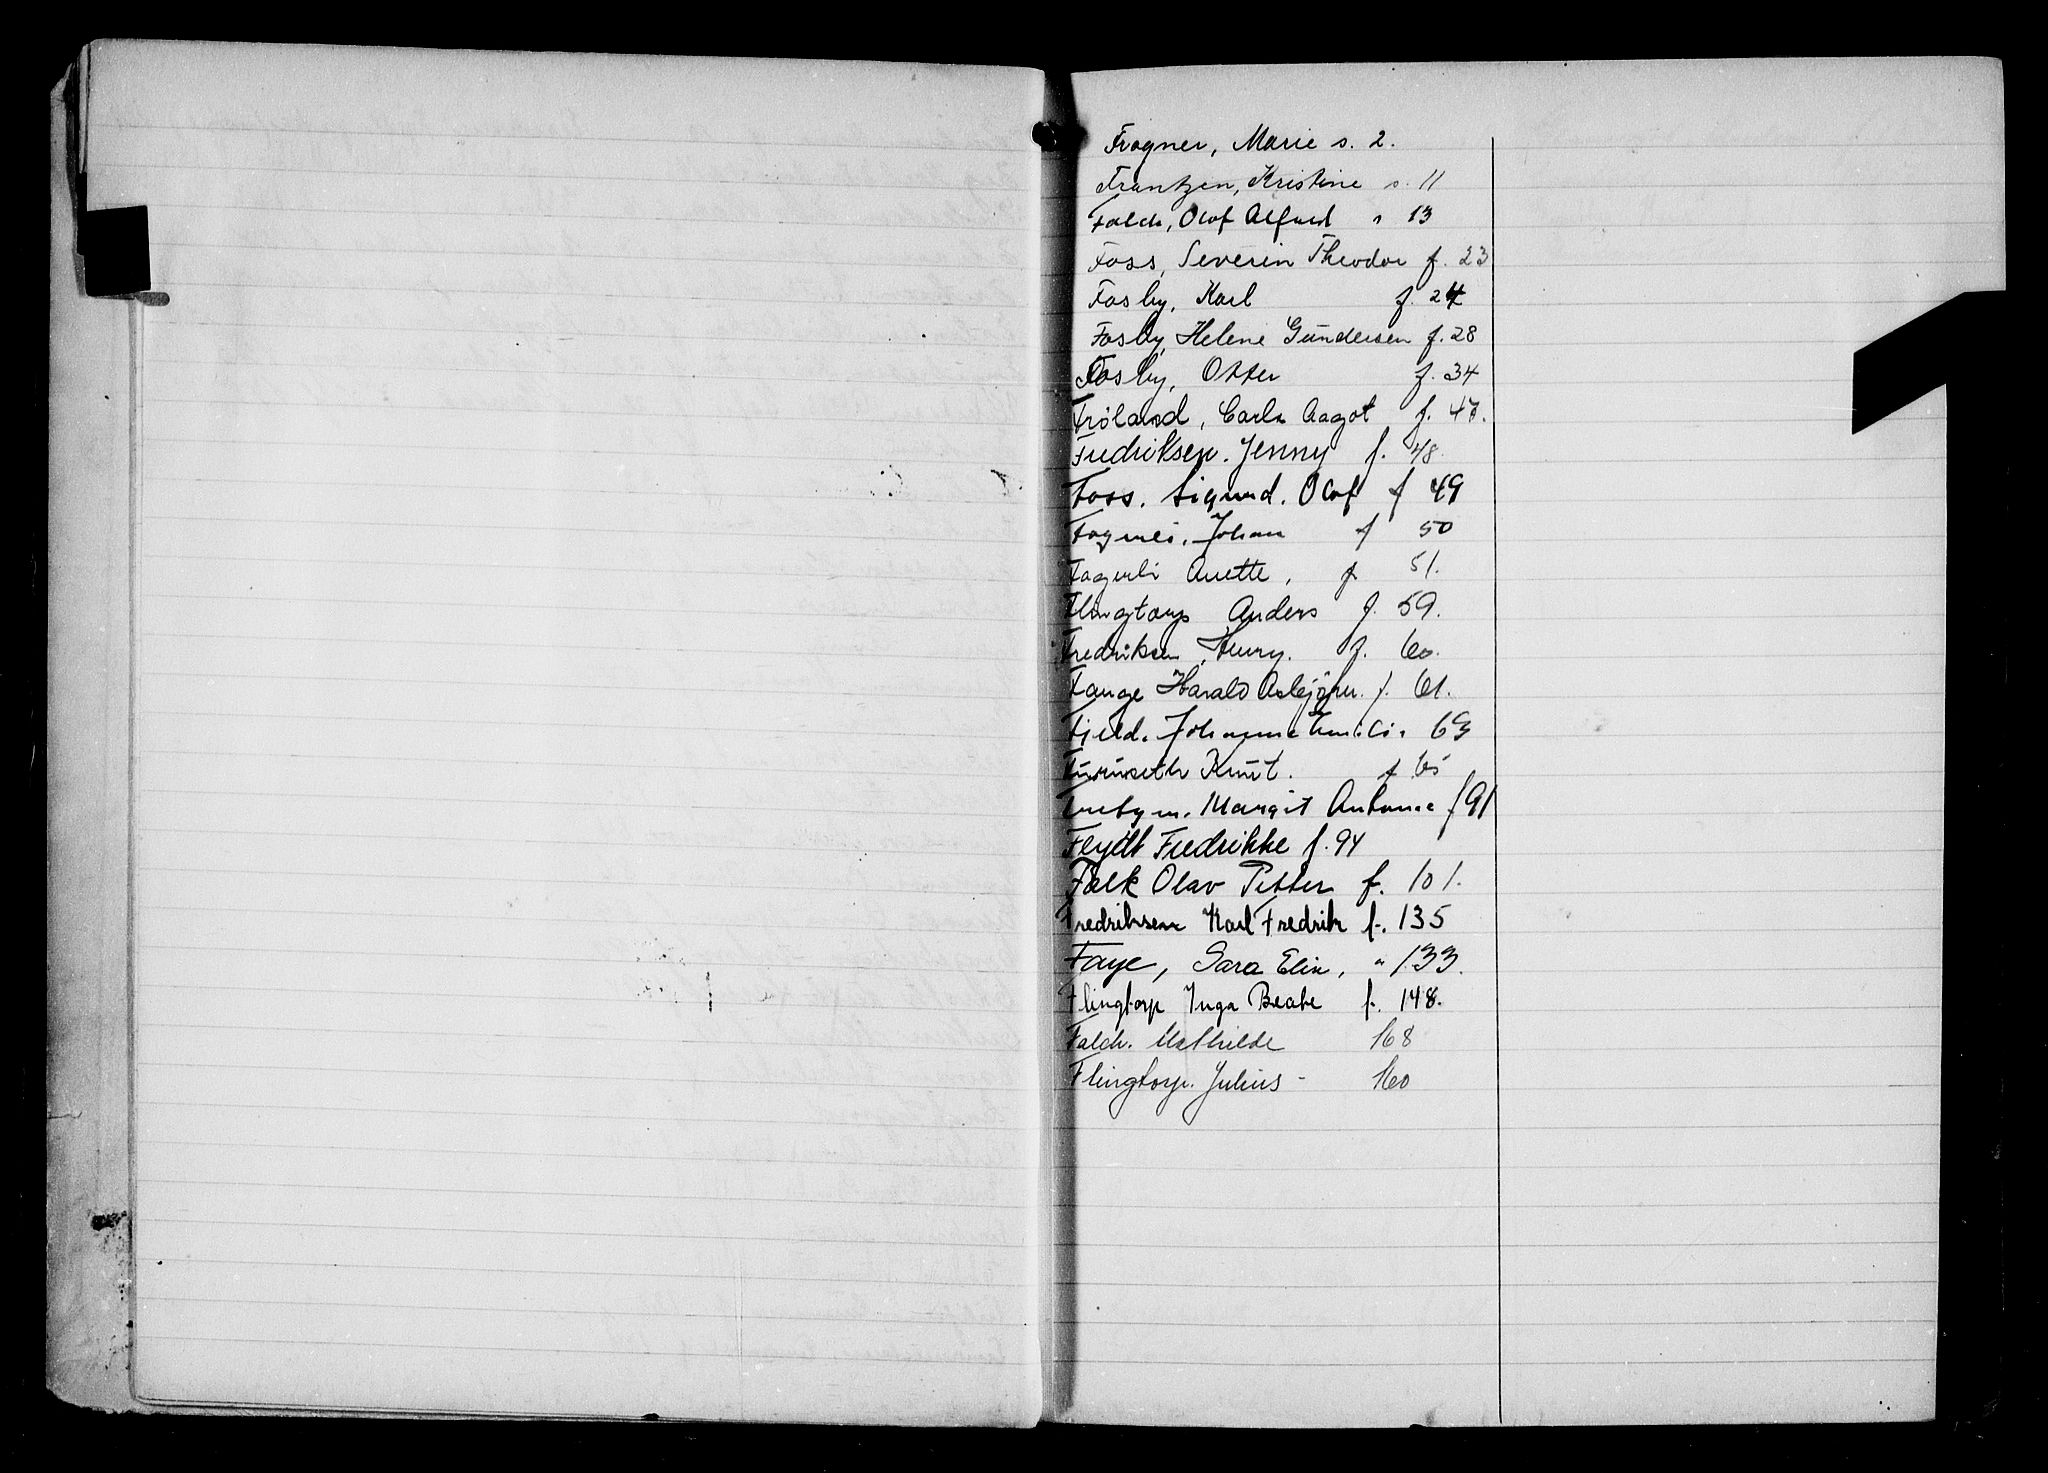 Frogner, Marie s. 2.
Frantzen, Kristine s. 11
Falch, Olof Alfred " 13
Foss, Severin Theodor f. 23
Fosby, Karl f. 24
Fosby, Helene Gundersen f. 28
Fosby, Otter f. 34
Frøland, Carla Aagot f. 47.
Fredriksen. Jenny f. 48.
Foss. Sigurd. Olof f 49
Johan f 50
Fagerli Anette, f 51.
Flingtorp Anders f. 59.
Fredriksen, Henry. f. 60.
Fange Harald Asbjørn. f. 61.
Fjeld. Johanne Emilie 63
Furuseth Knut. f 65
Margit Antonie f 91
Feydt Fredrikke f. 94
Falk Olav Petter f. 101.
Fredriksen Karl Fredrik f. 135
Faye, Sara Elin, " 133.
Flingtorp Inga Beate f. 148.
Falch. Mathilde 168
Flingtorp. Julius - 160